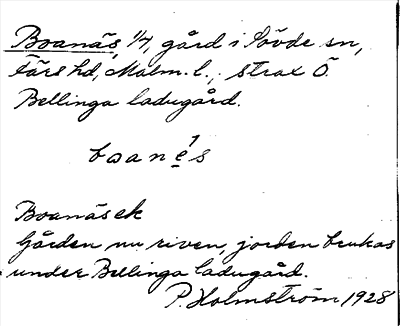 Boanäs, 1/4, gård i Sövde sn,
Färs hd, Malm. l., strax Ö.
Bellinga ladugård.
boane̱´s
Boanäsek
Gården nu riven, jorden brukas
under Bellinga ladugård.
P. Holmström 1928